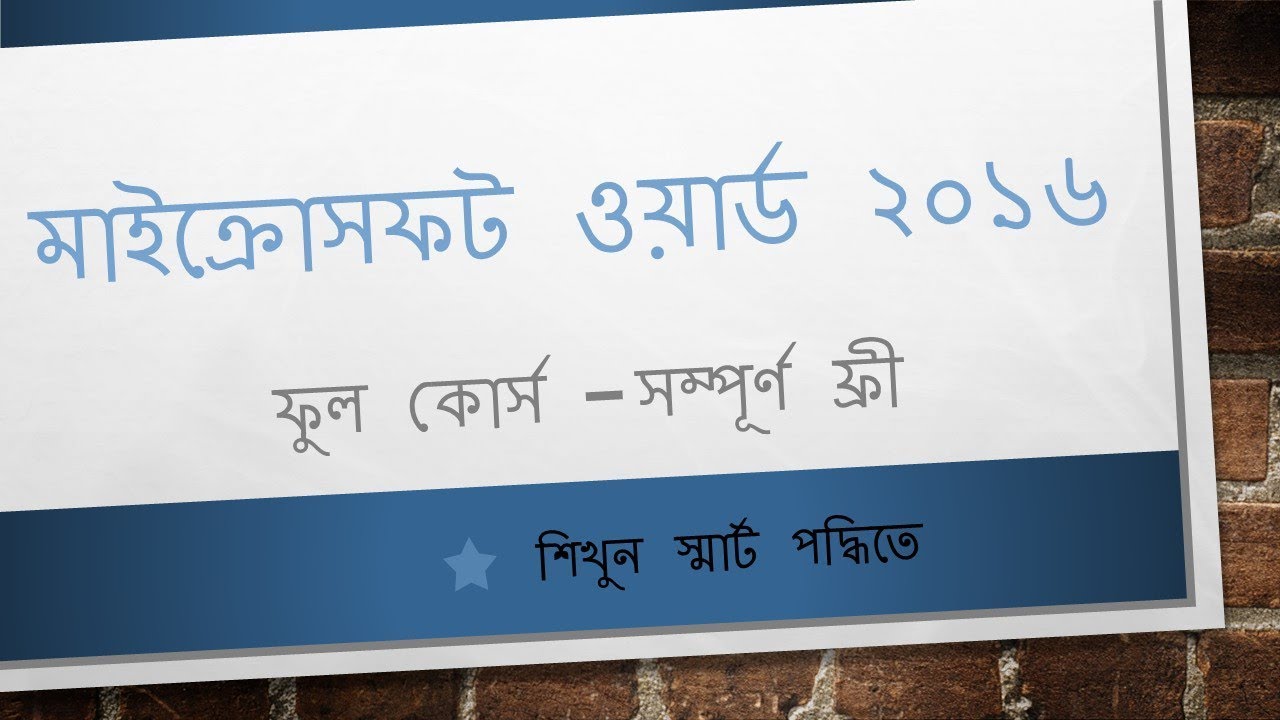 মাইক্রোসফট ওয়ার্ড ২০১৬
ফুল কোর্স – সম্পূর্ণ ফ্রী
শিখুন স্মার্ট পদ্ধিতে